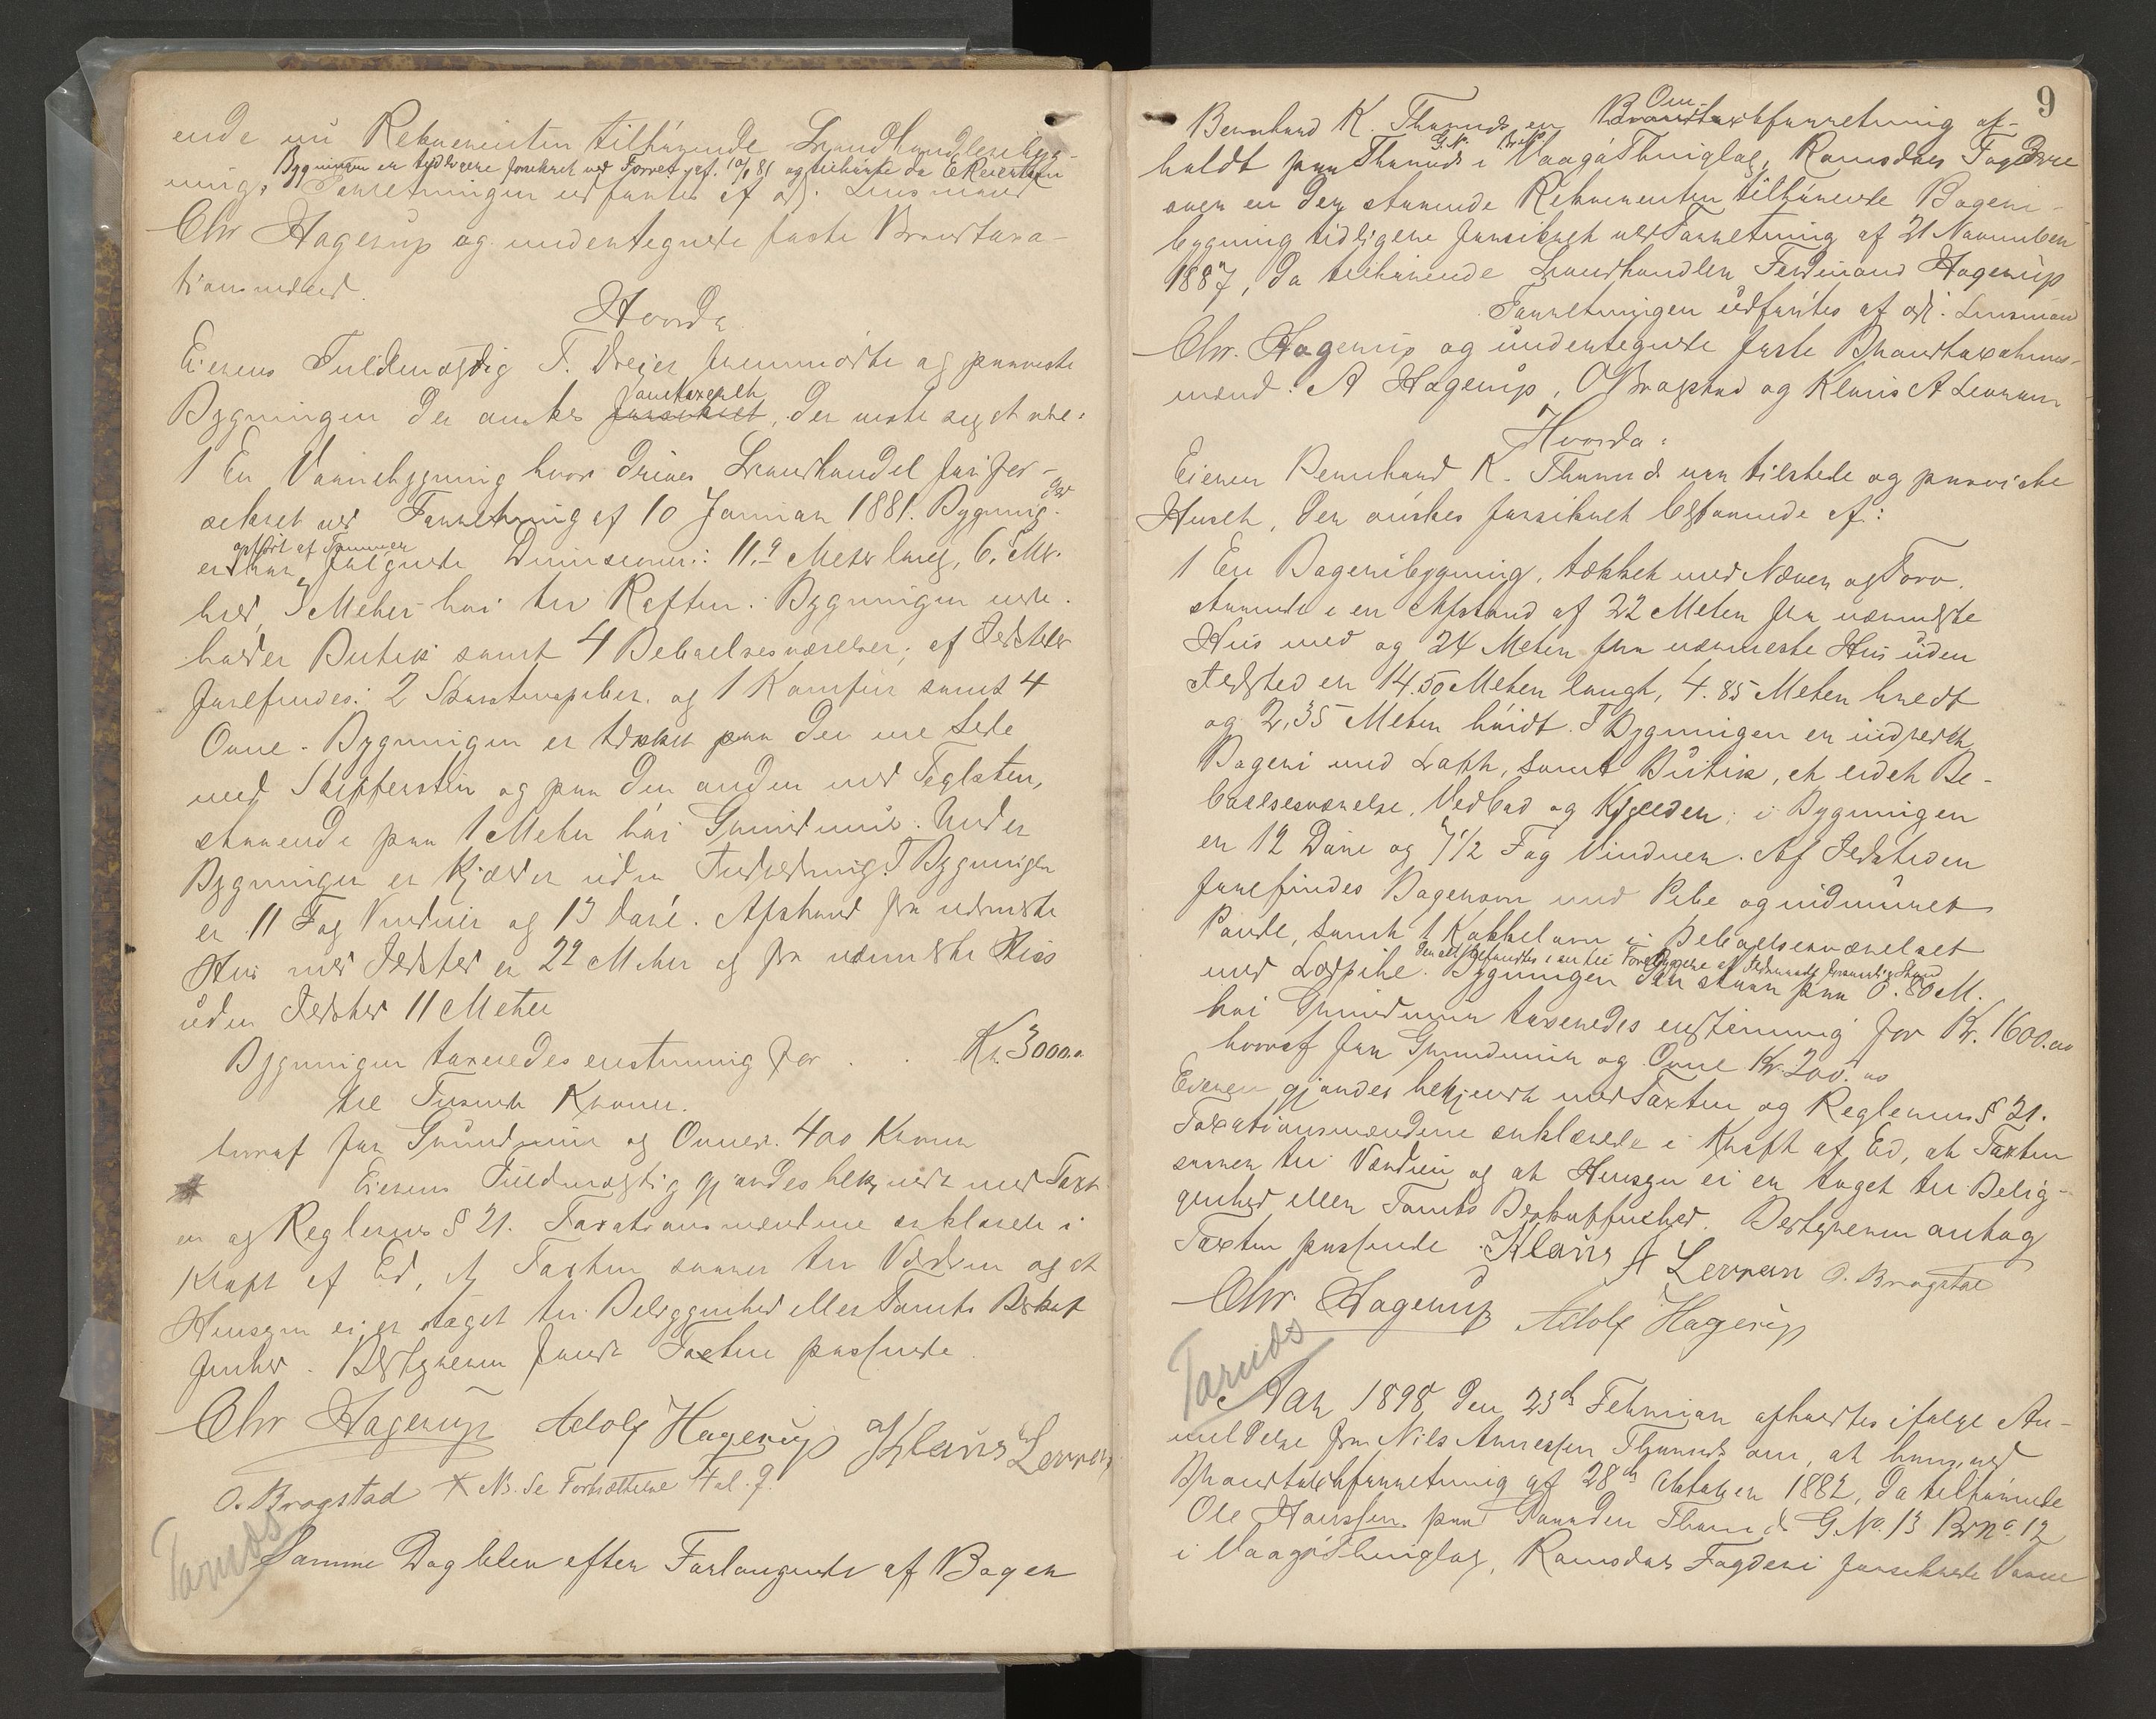 ende nu Rekvirenten tilhørende Landhandleribyg-
Bygningen er tidligere forsikret ved Forretn. af 10/1 81 og tilhørte da E Reiersen
ning. Forretningen udførtes af adj. Lensmand
Chr Hagerup og undertegnede faste Brandtaxa-
tionsmænd.
Hvorda
Eierens Fuldmægtig T. Dreier fremmødte og paaviste
omtaxeret
Bygningen der ønskes forsikret, der viste sig at være:
1 En Vaanebygning hvor drives Landhandel før for-
sikret ved Forretning af 10 Januar 1881. Bygning-
opført af Tømmer
er har følgende Dimensioner: 11.9 Meter lang, 6. Mtr.
bred, 3 Meter høi til Raften. Bygningen inde-
holder Butik samt 4 Beboelsesværelser; af Ildsteder
forefindes: 2 Skorstenspiber. og 1 Komfur samt 4
Ovne. Bygningen er tækket paa den ene Side
med Skifferstin og paa den anden med Teglsten,
staaende paa 1 Meter høi Grundmur. Under
Bygningen er Kjælder uden Indredning. I Bygningen
er 11 Fag Vinduer og 13 Døre. Afstand fra nærmeste
Hus med Ildsted er 22 Meter og fra nærmeste Hus
uden Ildsted 11 Meter
Bygningen taxeredes enstemmig for . . Kr. 3000.00
tre Tusinde Kroner.
hvoraf for Grundmur og Ovner. 400 Kroner
Eierens Fuldmægtig gjordes bekjendt med Taxt
en og Reglernes § 21. Taxationsmændene erklærede i
Kraft af Ed, at Taxten svarer til Værdien og at
Hensyn ei er taget til Beliggenhed eller Tomts Beskaf
fenhed. Bestyreren fandt Taxten passende
Chr Hagerup Adolf Hagerup Klaus A Levran
O. Bragstad X Ns. Se Fortsættelse Fol. 9.
Tarnds
Samme Dag blev efter Forlangende af Bager
9
Om-
Bernhard K. Tharnds en Brandtaxtforretning af-
G.N. Br.N.
holdt paa Tharnds i Vaagø Thinglag, Romsdals Fogderi
over en der staaende Rekvirenten tilhørende Bageri-
bygning tidligere forsikret ved Forretning af 21 November
1887, da tilhørende Landhandler Ferdinand Hagerup
Forretningen udførtes af adj. Lensmand
Chr. Hagerup og undertegnede faste Brandtaxations-
mænd: A Hagerup, O Bragstad og Klaus A Levran
Hvorda:
Eieren Bernhard K. Tharnds var tilstede og paaviste
Huset, der ønskes forsikret bestaaende af:
1 En Bageribygning, tækket med Næver og Torv.
staaende i en Afstand af 22 Meter fra nærmeste
Hus med og 24 Meter fra nærmeste Hus uden
Ildsted er 14.50 Meter langt, 4.85 Meter bredt
og 2,35 Meter høidt. I Bygningen er indredet
Bageri med Loft, samt Butik, et lidet Be-
boelsesværelse, Vedbod og Kjælder: i Bygningen
er 12 Døre og 7 1/2 Fag Vinduer. Af Ildsteder
forefindes Bagerovn med Pibe og indmuret
Pande, samt 1 Kakkelovn i Beboelsesværelset
med Lodpibe. Bygningen der staar paa 0.80 M.
høi Grundmur taxeredes enstemmig for Kr. 1600.00
hvoraf for Grundmur og Ovne Kr. 200.00
Eieren gjordes bekjendt med Taxten og Reglernes § 21.
Taxationsmændene erklærede i Kraft af Ed, at Taxten
svarer til Værdien og at Hensyn ei er taget til Belig-
genhed eller Tomts Beskaffenhed. Bestyreren antog
Taxten passende Klaus A Levran O. Bragstad
Chr. Hagerup Adolf Hagerup
Tarnds
Aar 1898 den 23de Februar afholdtes ifølge An-
meldelse fra Nils Annessen Tharnds om, at hans, ved
Brandtaxtforretning af 28de Oktober 1882, da tilhørende
Ole Hanssen paa Gaarden Tharnds G.No. 13 Br.No. 12
i Vaagø Thinglag, Romsdals Fogderi forsikrede Vaane